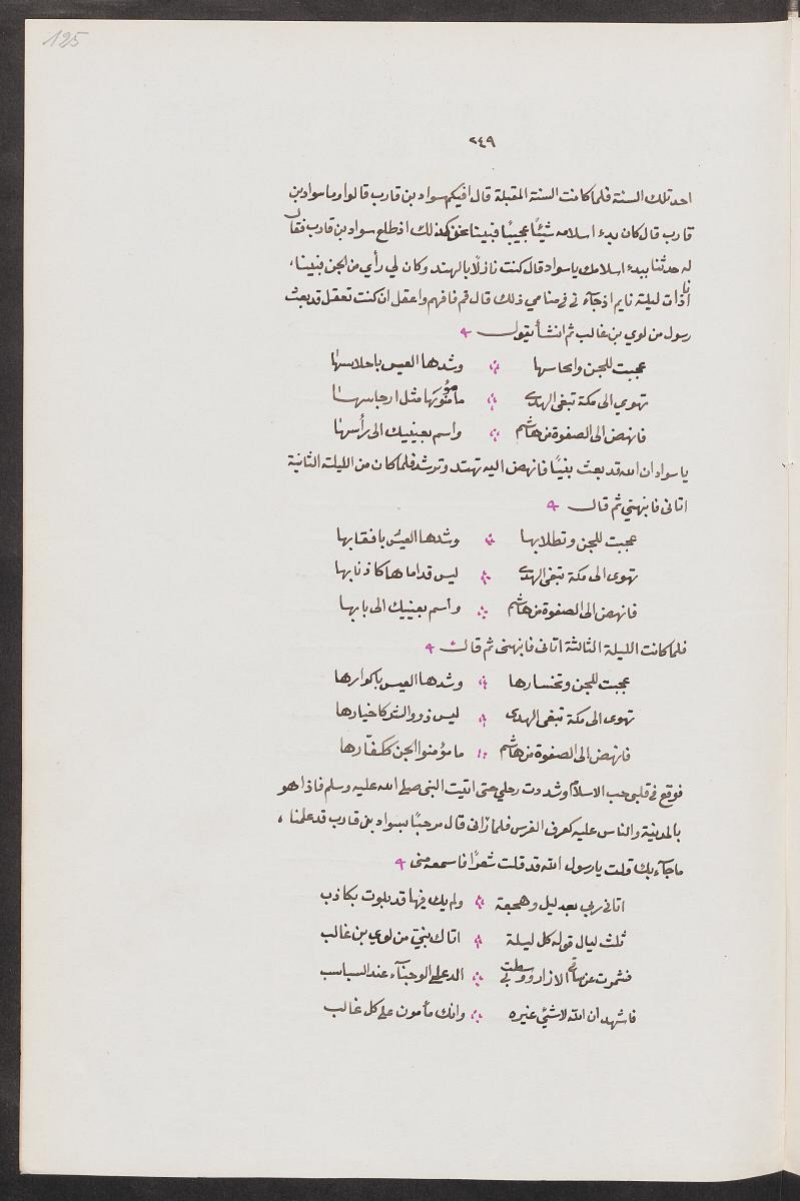 125
٢٤٩
احد تلك السنة فلما كانت السنة المقبلة قال افيكم سواد بن قارب قالوا وما سواد بن
قارب قال كان بدء اسلامه شيئًا عجيبًا فبينا نحن كذلك اذ طلع سواد بن قارب فقال
له حدثنا ببدء اسلامك يا سواد قال كنت نازلًا بالهند وكان لي رأي من الجن فبينا،
انا ذات ليلة نايم اذ جآء ني في منامي ذلك قال قم فافهم واعقل ان كنت تعقل قد بعث
رسول من لوي بن غالب ثم انشأ يقول
عجبت للجن وانحاسها وشدها العيس باحلاسها
تهوي الى مكة تبغى الهدى ما مؤمنوها مثل ارجاسها
فانهض الى الصفوة من هاشم واسم بعينيك الى رأسها
يا سواد ان الله قد بعث نبيًا فانهض اليه تهتد وترشد فلما كان من الليلة الثانية
اتانى فانبهني ثم قال
عجبت للجن وتطلابها وشدها العيس باقتابها
تهوى الى مكة تبغى الهدى ليس قداماها كاذنابها
فانهض الى الصفوة من هاشم واسم بعينيك الى بابها
فلما كانت الليلة الثالثة اتانى فانبهنى ثم قال
عجبت للجن وتخسارها وشدها العيس باكوارها
تهوى الى مكة تبغى الهدى ليس ذوو الشر كاخيارها
فانهض الى الصفوة من هاشم ما مؤمنوا الجن ككفّارها
فوقع في قلبى حب الاسلام وشددت رحلي حتى اتيت النبى صلى الله عليه وسلم فاذا هو
بالمدينة والناس عليه كعرف الفرس فلما رٰانى قال مرحبًا بسواد بن قارب قد علمنا،
ما جآء بك قلت يا رسول الله قد قلت شعرًا فاسمعه منى
اتانى ربي بعد ليل وهجعة ولم يك فيها قد بلوت بكاذب
ثلث ليال قوله كل ليلة اتاك نبيّ من لوي بن غالب
فشمرت عن ساقي الازار ووسطت بي الدعلي الوجنآء عند السباسب
فاشهد ان الله لا شئي غيره وانك مأمون على كل غالب